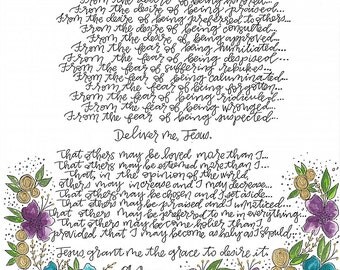 From the desire of being praised...
From the desire of being preferred to others...
From the desire of being consulted...
From the desire of being approved...
From the fear of being humiliated...
From the fear of being despised...
From the fear of suffering rebukes...
From the fear of being calumniated...
From the fear of being forgotten...
From the fear of being ridiculed...
From the fear of being wronged...
From the fear of being suspected...
Deliver me, Jesus.
That others may be loved more than I...
That others may be esteemed more than I...
That, in the opinion of the world,
others may increase and I may decrease...
That others may be chosen and I set aside...
That others may be praised and I unnoticed...
That others may be preferred to me in everything...
That others may become holier than I,
provided that I may become as holy as I should...
Jesus grant me the grace to desire it.